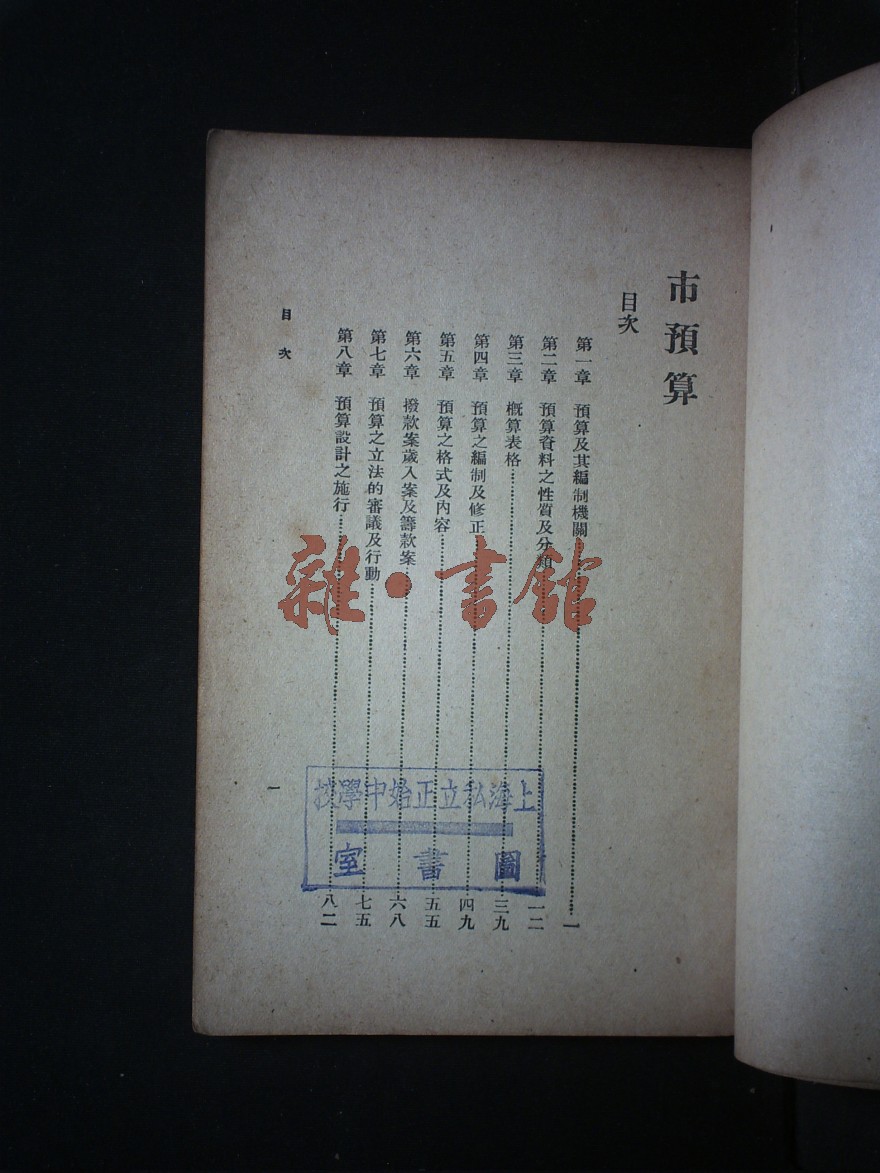 市預算
目次
第一章　預算及其編制機關……一
第二章　預算資料之性質及分類……一二
第三章　概算表格……三九
第四章　預算之編制及修正……四九
第五章　預算之格式及內容……五五
第六章　撥款案歲入案及籌款案……六八
第七章　預算之立法的審議及行動……七五
第八章　預算設計之施行……八二
目次
一
雜·書館
上海私立正始中學校
圖書室